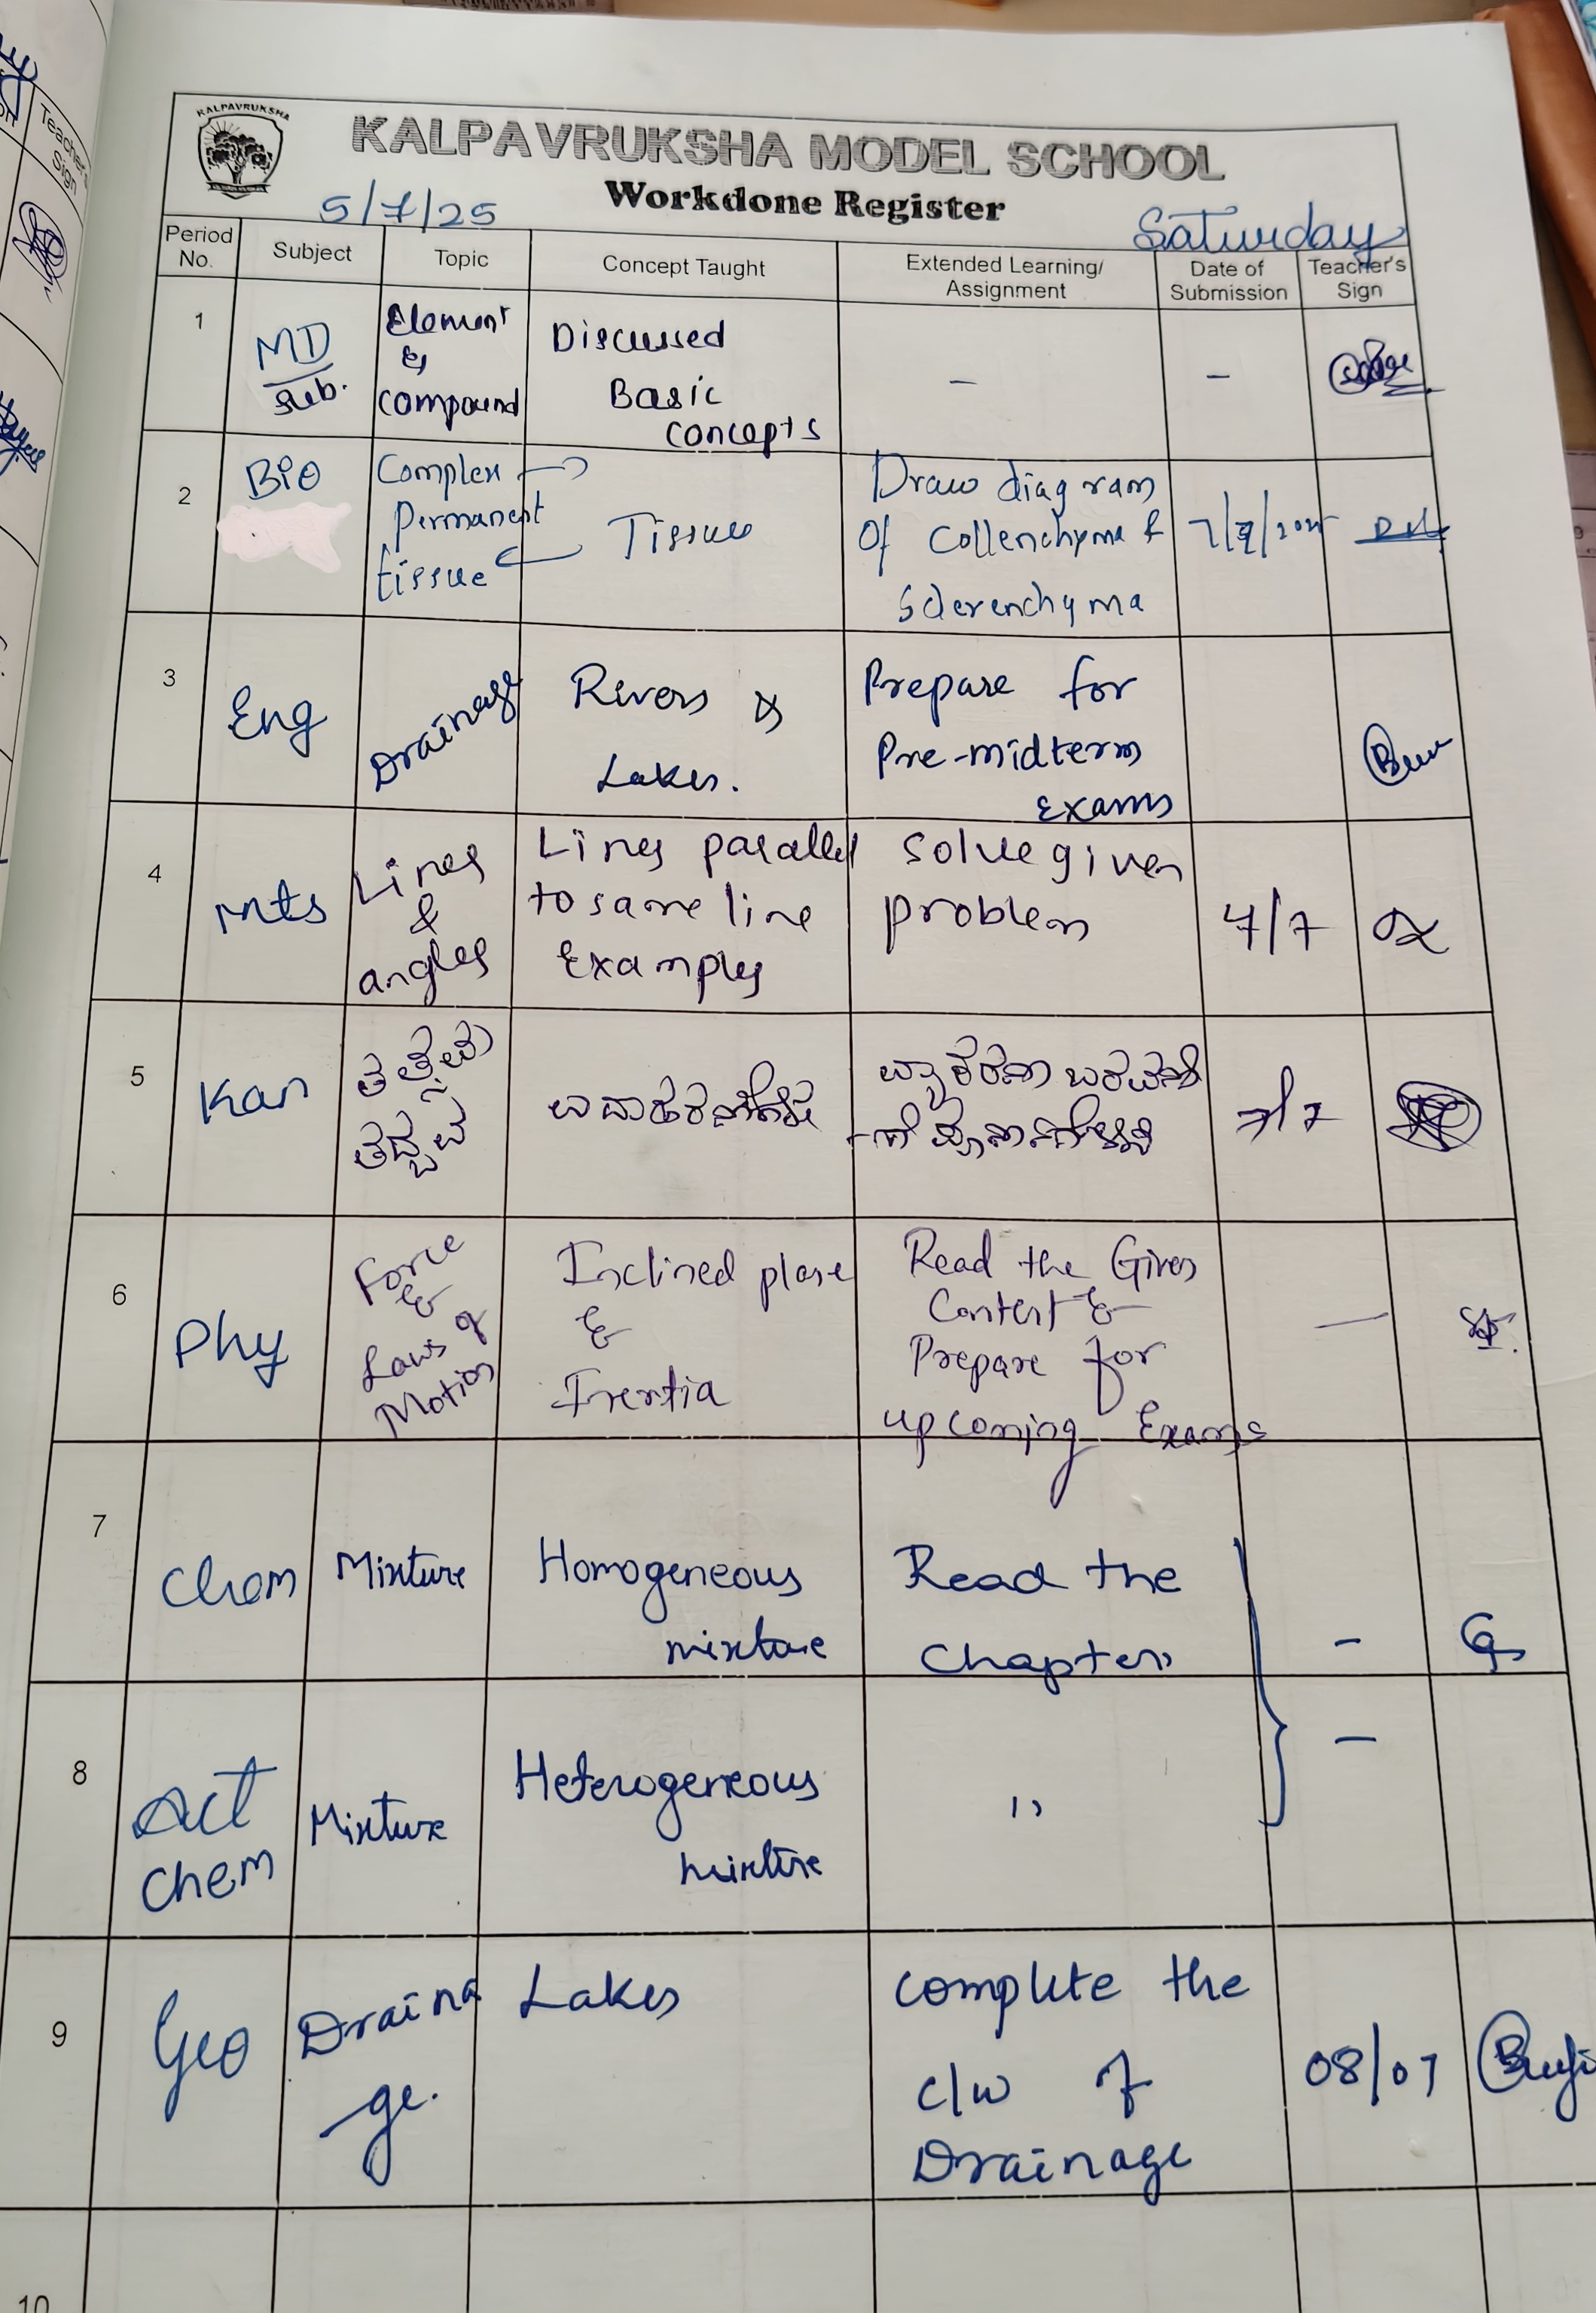 KALPAVRUKSHA
KALPAVRUKSHA MODEL SCHOOL
Workdone Register
5/7/25
Saturday
Period No.
Subject
Topic
Concept Taught
Extended Learning/ Assignment
Date of Submission
Teacher's Sign
1
MD
Sub.
Element
&
compound
Discussed
Basic
concepts
-
-
2
Bio
Complex
Permanent
tissue
Tissue
Draw diagram
Of Collenchyma &
Sclerenchyma
3
Eng
Drainage
Rivers &
Lakes.
Prepare for
Pre-midterm
Exams
4
Mts
Lines
&
angles
Lines parallel
to same line
Examples
Solve given
problem
7/7
5
Kan
ತತ್ಸಮ
ತದ್ಭವ
7/7
6
Phy
Force
&
Laws of
Motion
Inclined plane
&
Inertia
Read the Given
Content &
Prepare for
upcoming Exams
—
7
Chem
Mixture
Homogeneous
mixture
Read the
Chapter
-
8
Act
Chem
Mixture
Heterogeneous
mixture
"
-
9
Geo
Draina
ge.
Lakes
complete the
c/w of
Drainage
08/07
10
Teacher's
Sign